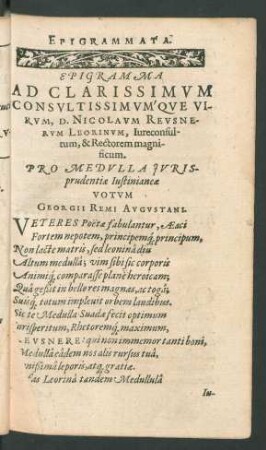 EPIGRAMMATA.
EPIGRAMMA
AD CLARISSIMVM
CONSVLTISSIMVMQVE VI-
RVM, D. NICOLAVM REVSNE-
RVM LEORINVM, Iureconsul-
tum, & Rectorem magni-
ficum.
PRO MEDVLLA IVRIS-
prudentiæ Iustinianeæ
VOTVM
GEORGII REMI AVGVSTANI.
VETERES Poëtæ fabulantur, Æaci
Fortem nepotem, principemq́; principum,
Non lacte matris, sed leoninâ diu
Altum medullâ; vim sibi sic corporis
Animiq́; comparasse planè heroicam;
Quâ gessit in bello res magnas, ac togâ;
Suisq́; totum impleuit orbem laudibus.
Sic te Medulla Suadæ fecit optimum
Iurisperitum, Rhetoremq́; maximum,
REVSNERE: qui non immemor tanti boni,
Medullâ eâdem nos alis rursus tuâ,
leporis, atq́; gratiæ.
Leorinâ tandem Medullulâ
Iu-